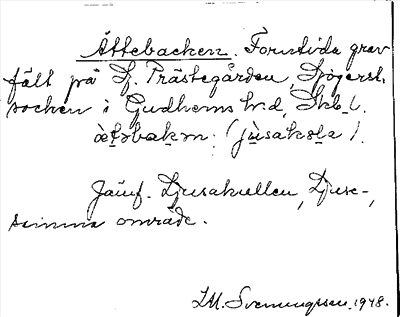 Ättebacken. Forntida grav
fält på Lf. Prästegården, Sjögerst.
socken i Gudhems hrd, Skb. l.
(jùsakola).
Jämf. Ljusakullen, Ljuse-,
samma område.
J.M. Svenungsson, 1948.